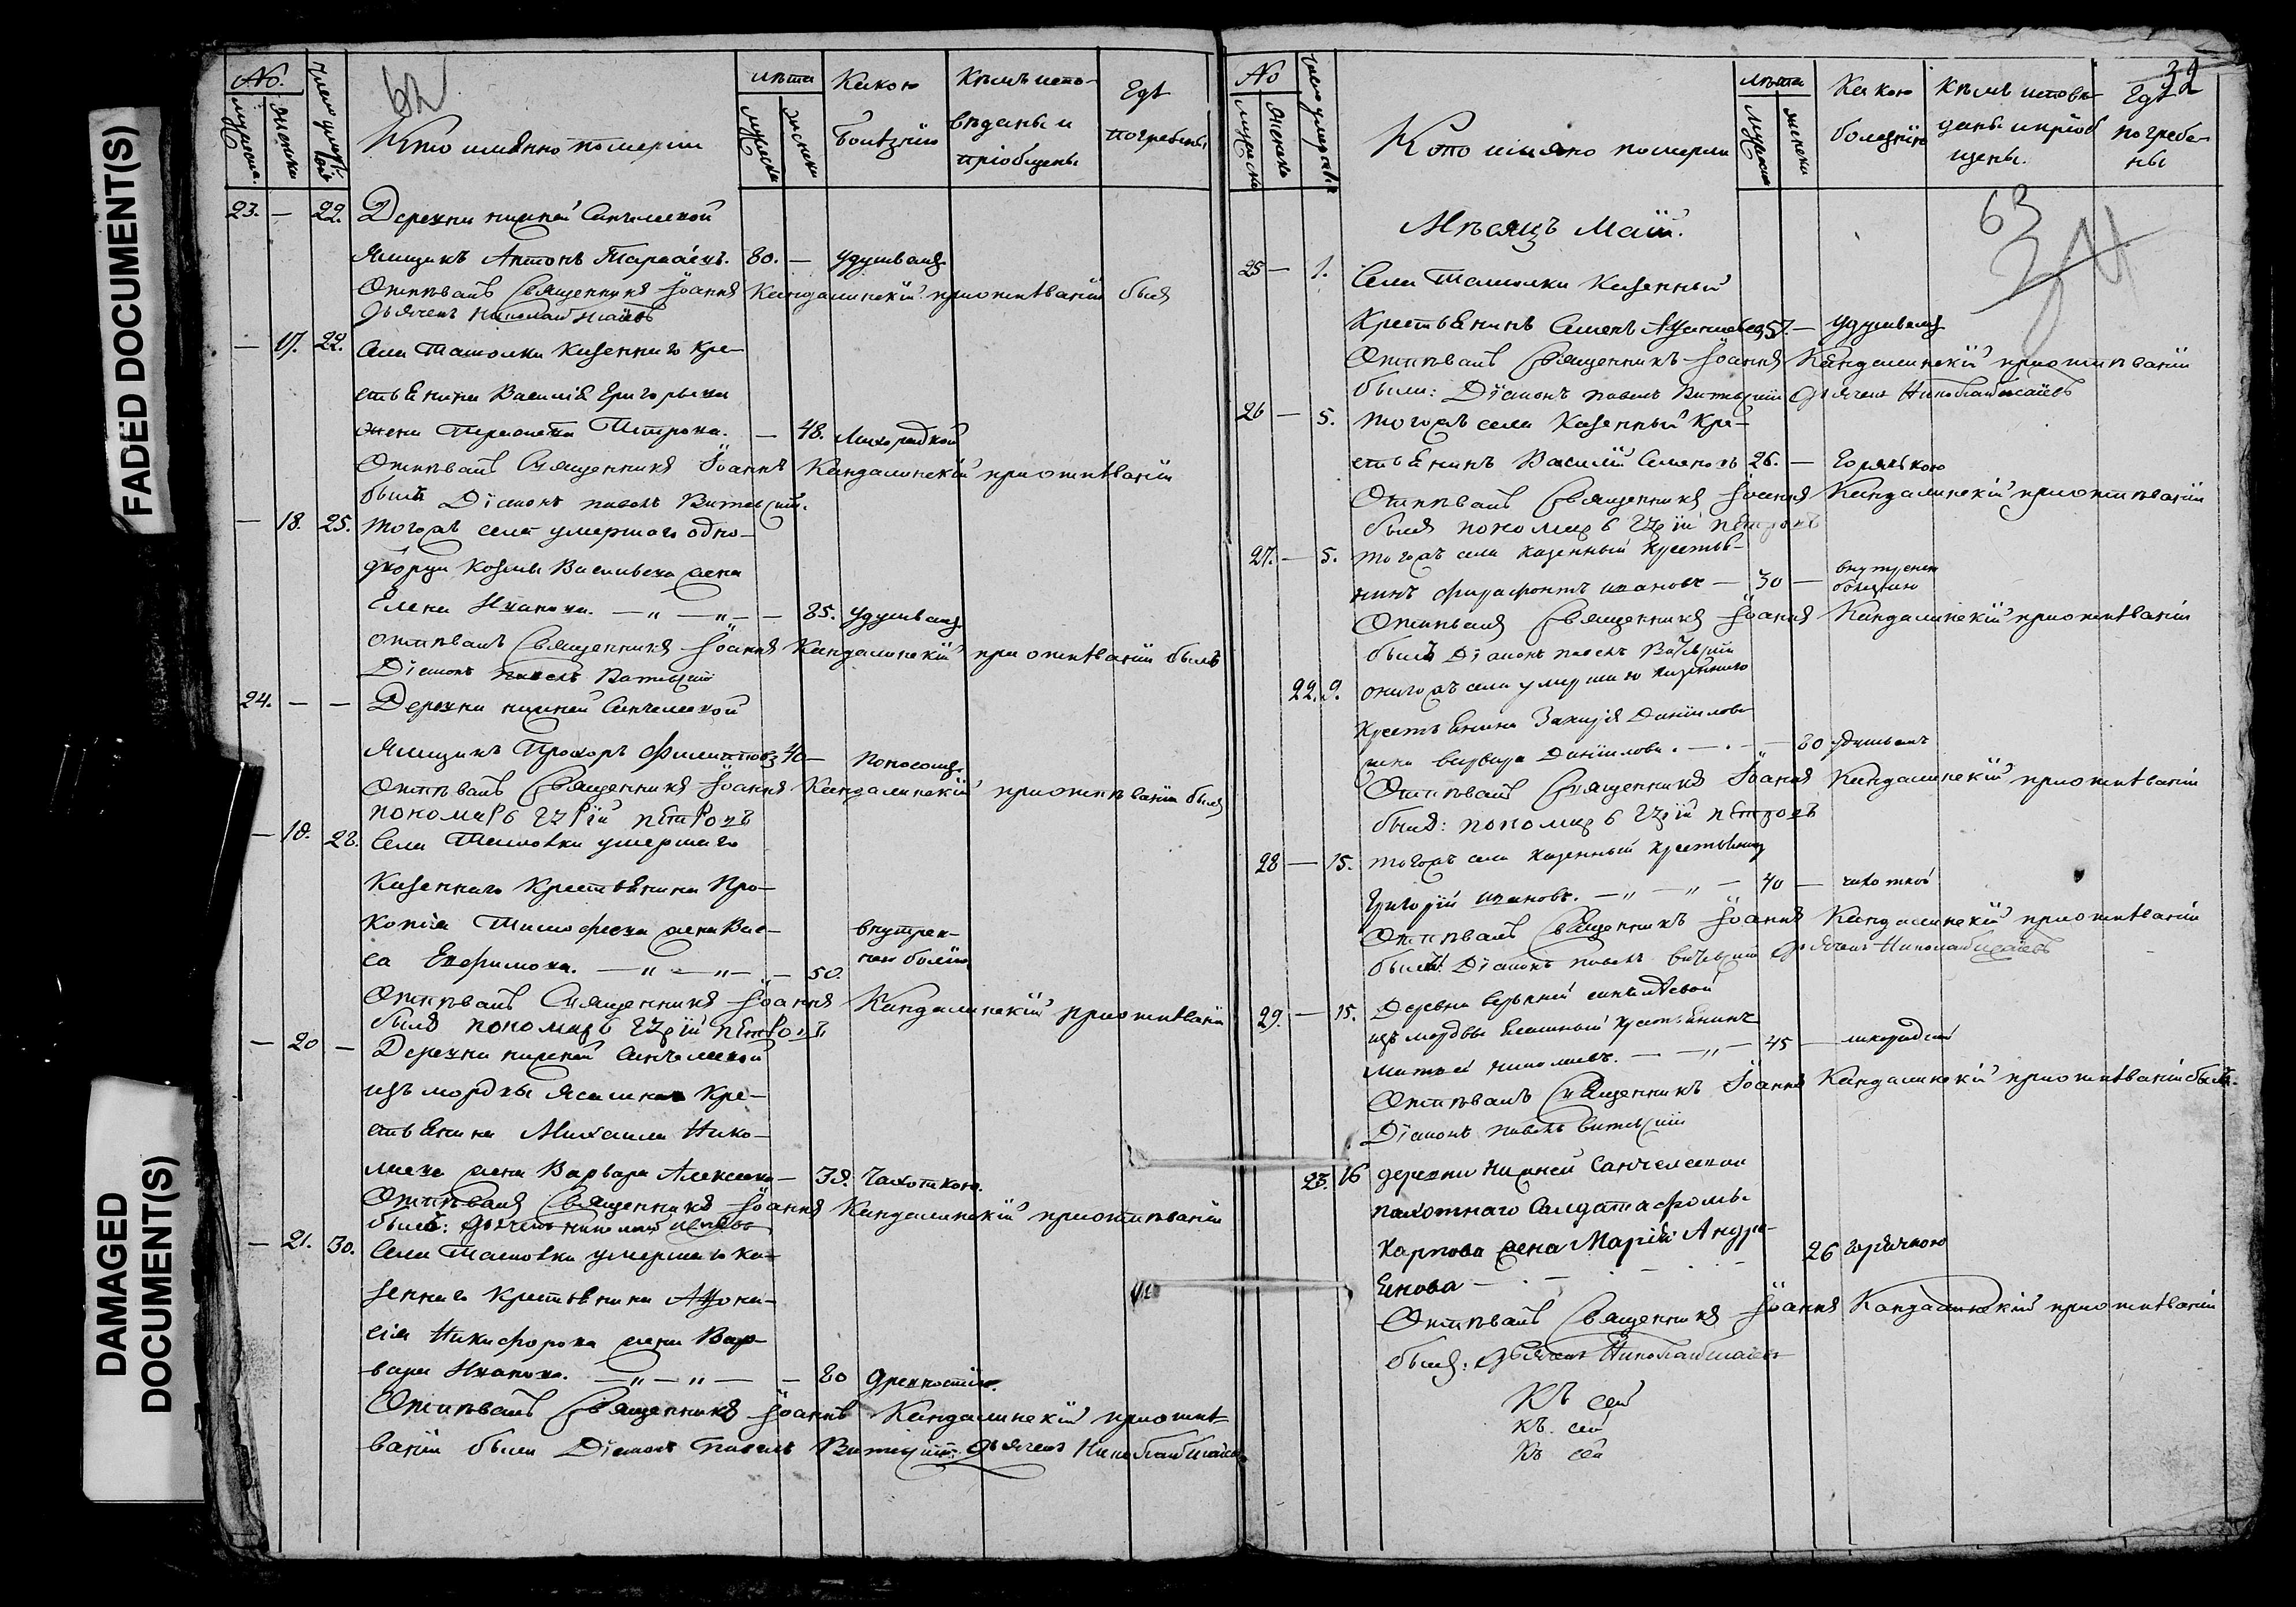 FADED DOCUMENT(S)
DAMAGED DOCUMENT(S)
No.
мужеска.
женска
число умер
62
Кто имянно померли
лѣта
мужеска
женска
Какою болѣзнію
Кѣмъ испо-
вѣданы и
пріобщены
Гдѣ
погребены
23. — 22. Деревни нижней Санчелеевой
Ямщикъ Антонъ 80. — удушьемъ
Отпѣвалъ Священникъ Іоаннъ Кандалинскій при отпѣваніи былъ
Дьячекъ Николай Исаевъ
— 17. 22. Села Ташолки Казеннаго Кре-
стьянина Василія Григорьева
жена Петрова. — 48. Лихорадкой
Отпѣвалъ Священникъ Іоаннъ Кандалинскій при отпѣваніи
былъ Діаконъ павелъ
— 18. 25. тогожъ села умершаго одно-
дворца Козмы Васильева жена
Елена Иванова. — „ — „ — — 85. удушьемъ
отпѣвалъ Священникъ Іоаннъ Кандалинскій при отпѣваніи былъ
Діаконъ павелъ
24. — — Деревни нижней Санчелеевой
Ямщикъ Прохоръ Филиповъ 40 — поносомъ
Отпѣвалъ Священникъ Іоаннъ Кандалинскій при отпѣваніи былъ
пономарь Гурій петровъ
— 19. 28. Села Ташолки умершаго
Казеннаго Крестьянина Про-
копія Тимофеева жена Вас-
са Ефимова. — „ — „ — — 50. внутрен-
ней болѣзн
Отпѣвалъ Священникъ Іоаннъ Кандалинскій при отпѣваніи
былъ пономарь Гурій петровъ
— 20 — Деревни нижней Санчелеевой
изъ мордвы Ясашнаго Кре-
стьянина Михаила Нико-
лаева жена Варвара Алексеева — 39. Чахоткою.
Отпѣвалъ Священникъ Іоаннъ Кандалинскій при отпѣваніи
былъ: Дьячекъ николай исаевъ
— 21. 30. Села Ташолки умершаго ка-
зеннаго крестьянина Афона-
сія Никифорова жена Вар-
вара Иванова. — „ — „ — — 80 древностію.
Отпѣвалъ Священникъ Іоаннъ Кандалинскій при отпѣ-
ваніи были Діаконъ Павелъ Дьячекъ Николай Исаевъ
No
мужеска
женска
число умерш
Кто имяно померли
лѣта
мужеска
женска
Какою
болезнію
Кѣмъ исповѣ-
даны и пріоб
щены.
Гдѣ
погребе-
ны
32
63
Мѣсяцъ Маій.
25 — 1. Села Ташолки Казенный
Крестьянинъ Семенъ 57. — удушьемъ
Отпѣвалъ Священникъ Іоаннъ Кандалинскій при отпѣваніи
были: Діаконъ павелъ Дьячекъ Николай Исаевъ
26 — 5. тогожъ села Казенный Кре-
стьянинъ Василій Семеновъ 26. — Горячкою
Отпѣвалъ Священникъ Іоаннъ Кандалинскій при отпѣваніи
былъ пономарь Гурій петровъ
27. — 5. тогожъ села казенный крестья-
нинъ ивановъ — 30 — внутренею
болезнію
Отпѣвалъ Священникъ Іоаннъ Кандалинскій при отпѣваніи
былъ Діаконъ павелъ
22. 9. оногожъ села умершаго казеннаго
крестьянина Даниилова
жена варвара Даниилова. — . — — 80 удушьемъ
Отпѣвалъ Священникъ Іоаннъ Кандалинскій при отпѣваніи
былъ: пономарь Гурій петровъ
28 — 15. тогожъ села казенный крестьянинъ
Григорій ивановъ. — „ — „ — 40 — чахоткой
Отпѣвалъ Священникъ Іоаннъ Кандалинскій при отпѣваніи
были: Діаконъ павелъ Дьячекъ Николай Исаевъ
29. — 15. Деревни верхней санчелѣевой
изъ мордвы Ясашный крестьянинъ
матвей николаевъ. — — „ — 45 — лихорадкой
Отпѣвалъ Священникъ Іоаннъ Кандалинскій при отпѣваніи былъ.
Діаконъ павелъ
23. 16 деревни нижней Санчелеевой
пахотнаго Салдата фомы
Карпова жена Марія Андре- 26 горячкою
Енова — . — . — . —
Отпѣвалъ Священникъ Іоаннъ Кандалинскій при отпѣваніи
былъ: Дьячекъ Николай исаевъ
Къ сей
къ сей
Къ сей